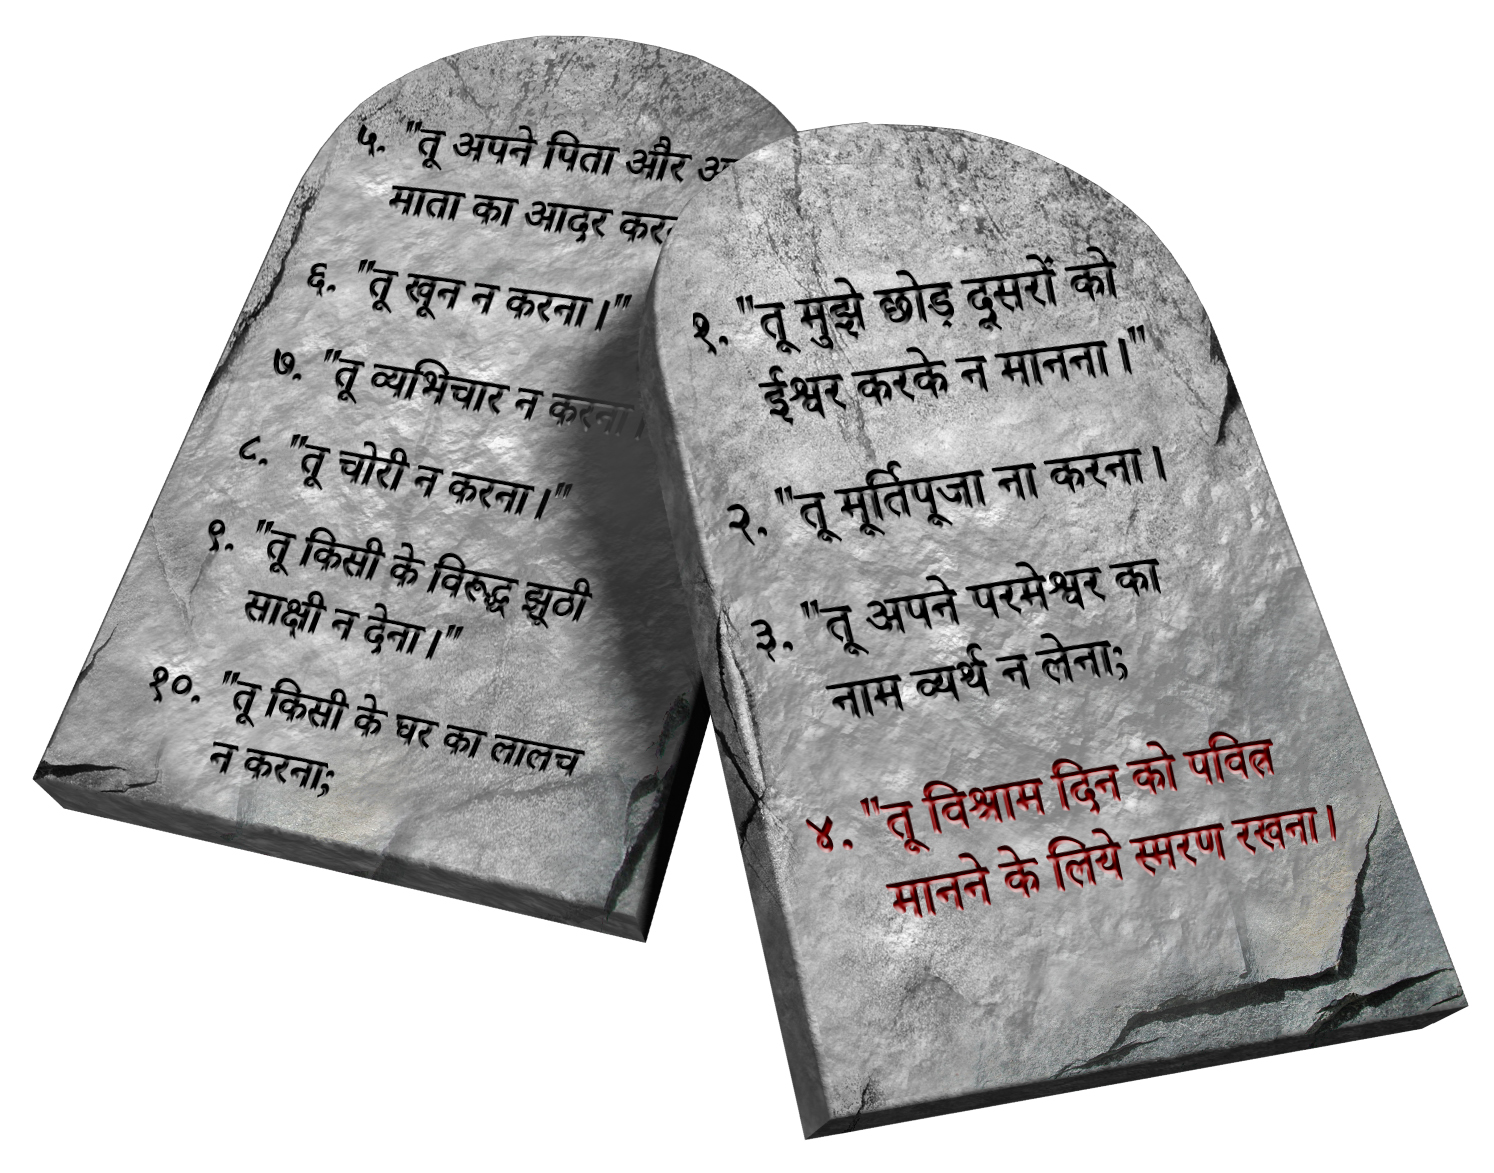 ५. "तू अपने पिता और
माता का आदर
६. "तू खून न करना।"
७. "तू व्यभिचार न करना।
८. "तू चोरी न करना।"
९. "तू किसी के विरूद्ध झूठी
साक्षी न देना।"
१०. "तू किसी के घर का लालच
न करना;
१. "तू मुझे छोड़ दूसरों को
ईश्वर करके न मानना।"
२. "तू मूर्तिपूजा ना करना।
३. "तू अपने परमेश्वर का
नाम व्यर्थ न लेना;
४. "तू विश्राम दिन को पवित्र
मानने के लिये स्मरण रखना।